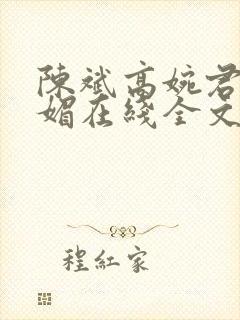 陳斌高婉君
媚在綫全文
程紅家